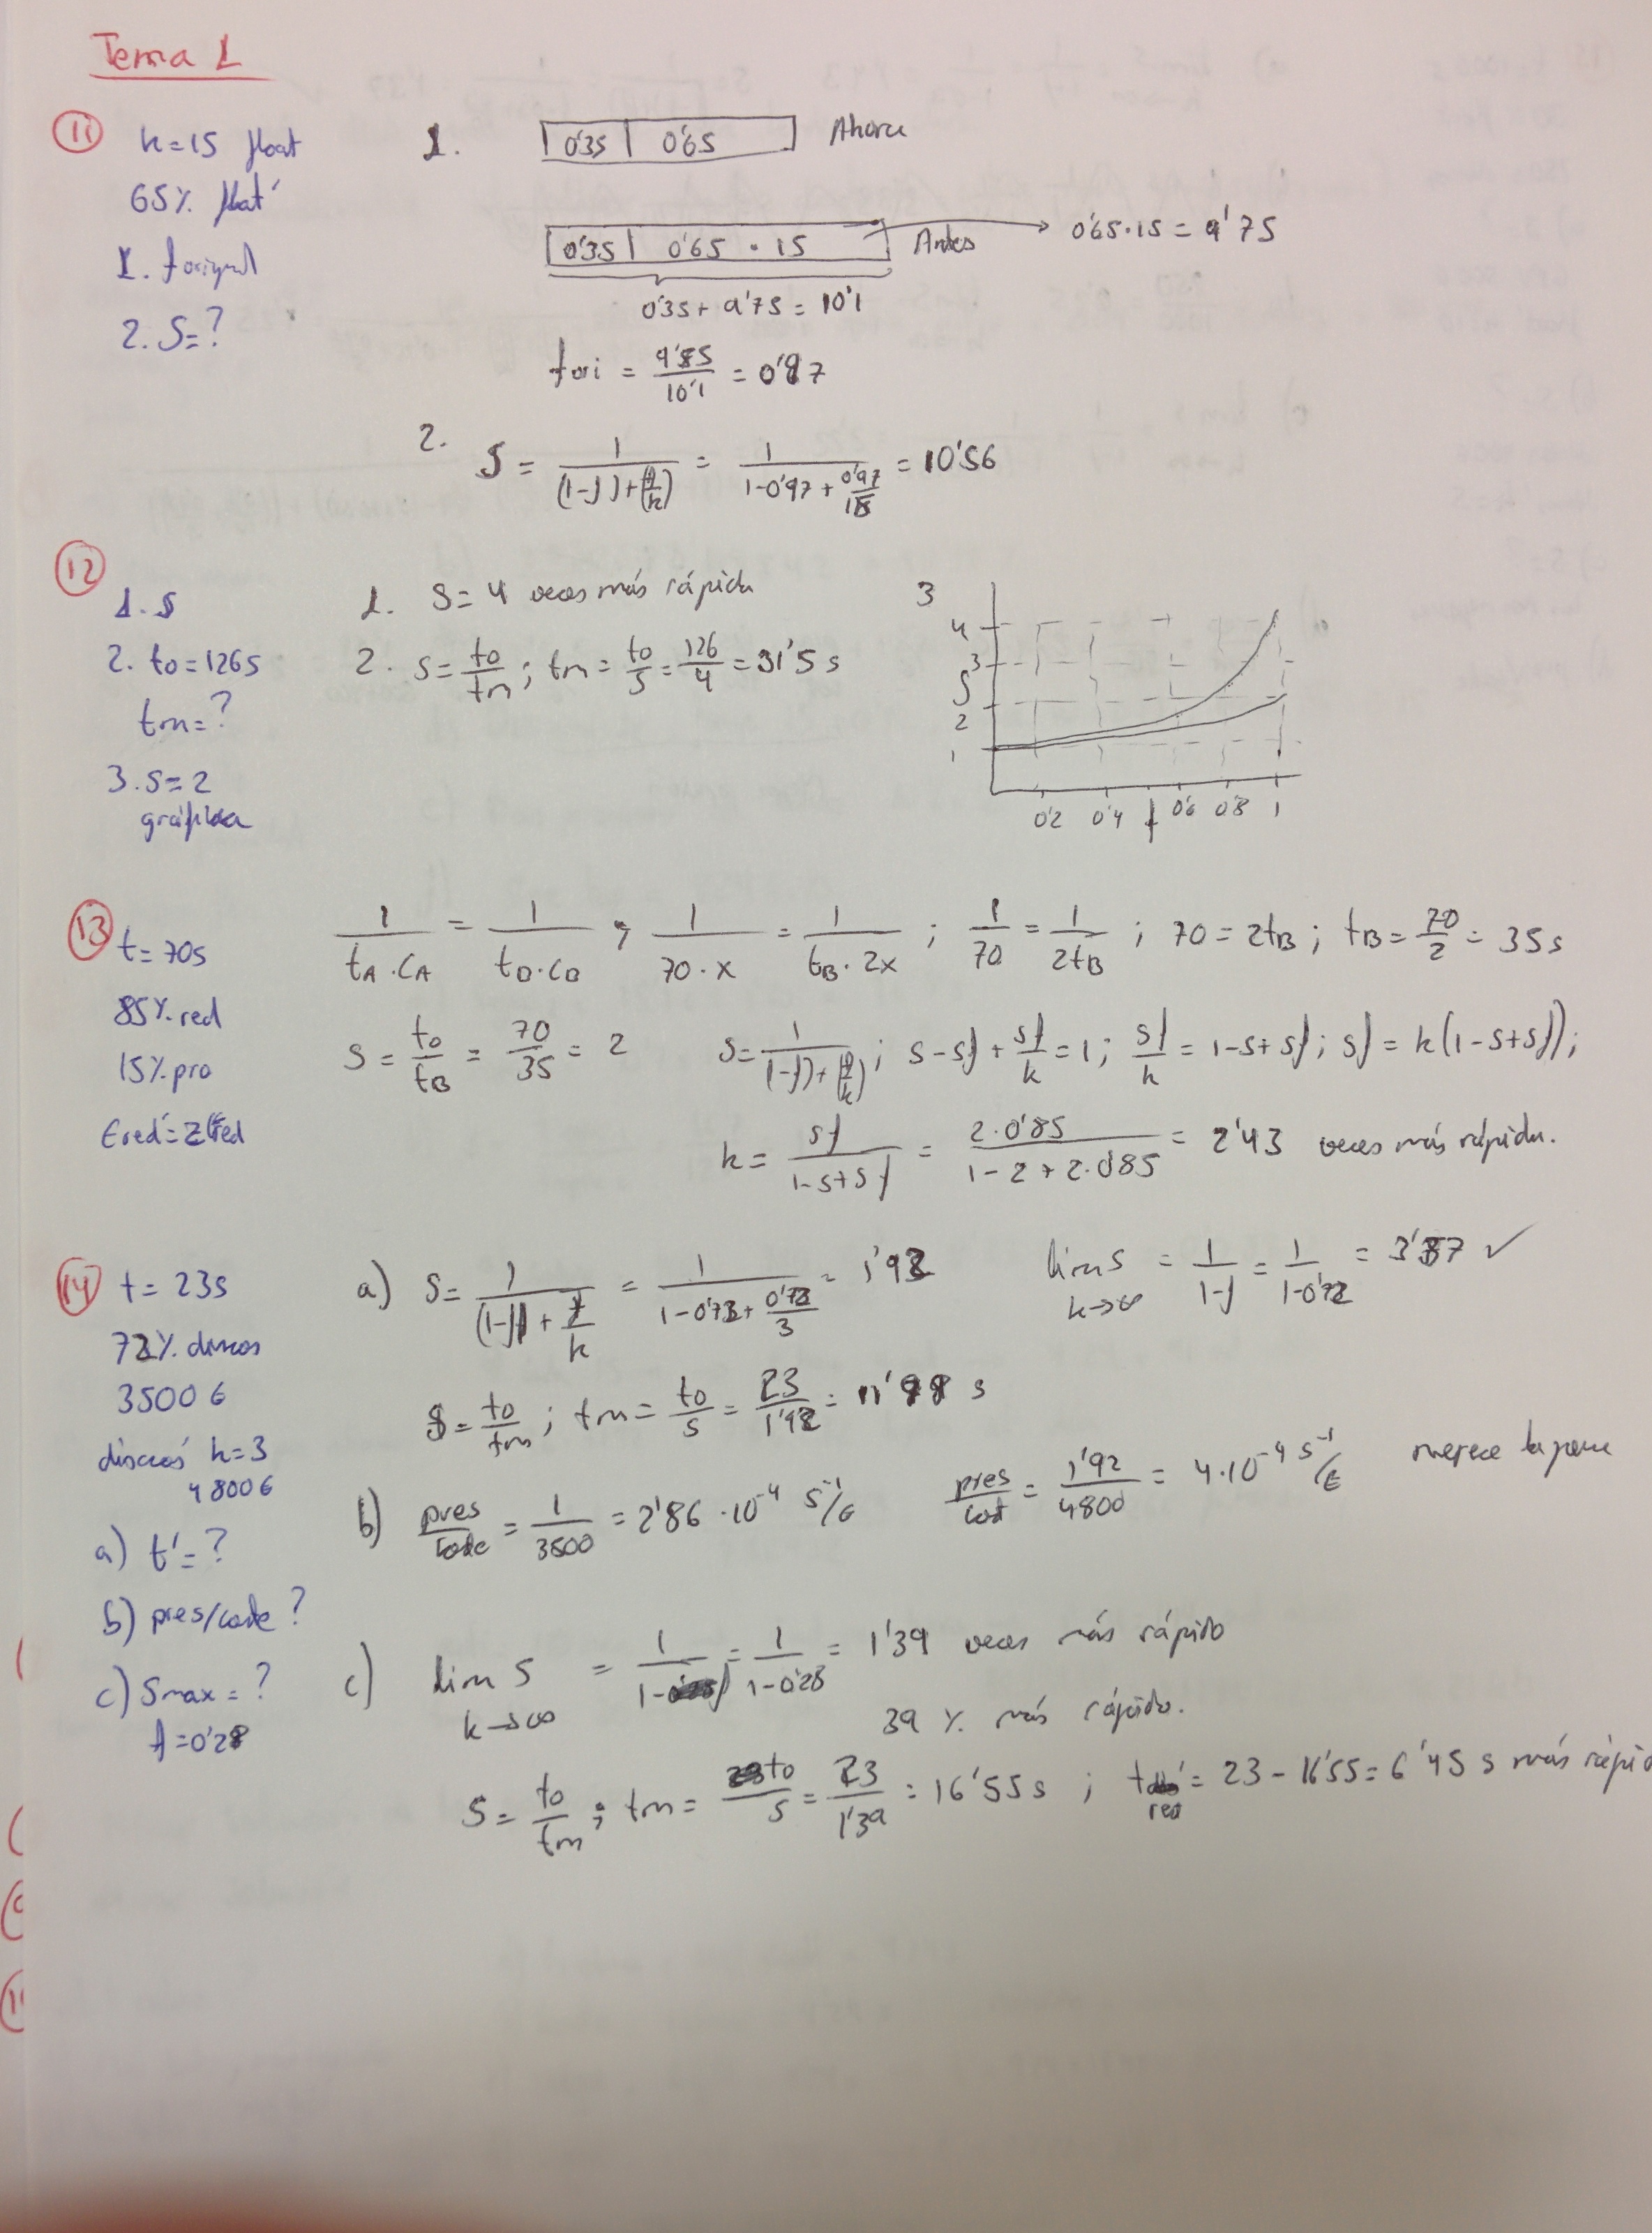 Tema 1
11
k=15 float
65% float'
1. foriginal
2. S=?
1. 0'35 | 0'65 Ahora
0'35 | 0'65 · 15 Antes → 0'65·15 = 9'75
0'35 + 9'75 = 10'1
fori = 9'75/10'1 = 0'97
2. S = 1/((1-f)+(f/k)) = 1/(1-0'97+0'97/15) = 10'56
12
1. S
2. to=126s
tm=?
3. S=2
gráfica
1. S=4 veces más rápida
2. S=to/tm; tm=to/S=126/4=31'5 s
3
4
3
S
2
1
0'2 0'4 f 0'6 0'8 1
13
t=70s
85% red
15% pro
Cred'=2Cred
1/(tA·CA) = 1/(tB·CB); 1/(70·x) = 1/(tB·2x); 1/70 = 1/2tB; 70=2tB; tB=70/2=35s
S=to/tB=70/35=2 S=1/((1-f)+(f/k)); S-Sf+Sf/k=1; Sf/k=1-S+Sf; Sf=k(1-S+Sf);
k=Sf/(1-S+Sf) = 2·0'85/(1-2+2·0'85) = 2'43 veces más rápida.
14
t=23s
72% discos
3500 €
discos' k=3
4800 €
a) t'=?
b) pres/coste?
c) Smax=?
f=0'28
a) S=1/((1-f)+f/k) = 1/(1-0'72+0'72/3) = 1'92 lim S k→∞ = 1/(1-f) = 1/(1-0'72) = 3'57 ✓
S=to/tm; tm=to/S=23/1'92=11'98 s
b) pres/coste = 1/3500 = 2'86·10⁻⁴ s⁻¹/€ pres/cost = 1'92/4800 = 4·10⁻⁴ s⁻¹/€ merece la pena
c) lim S k→∞ = 1/(1-f) = 1/(1-0'28) = 1'39 veces más rápido
39 % más rápido.
S=to/tm; tm=to/S=23/1'39=16'55 s; t = 23-16'55=6'45 s más rápid